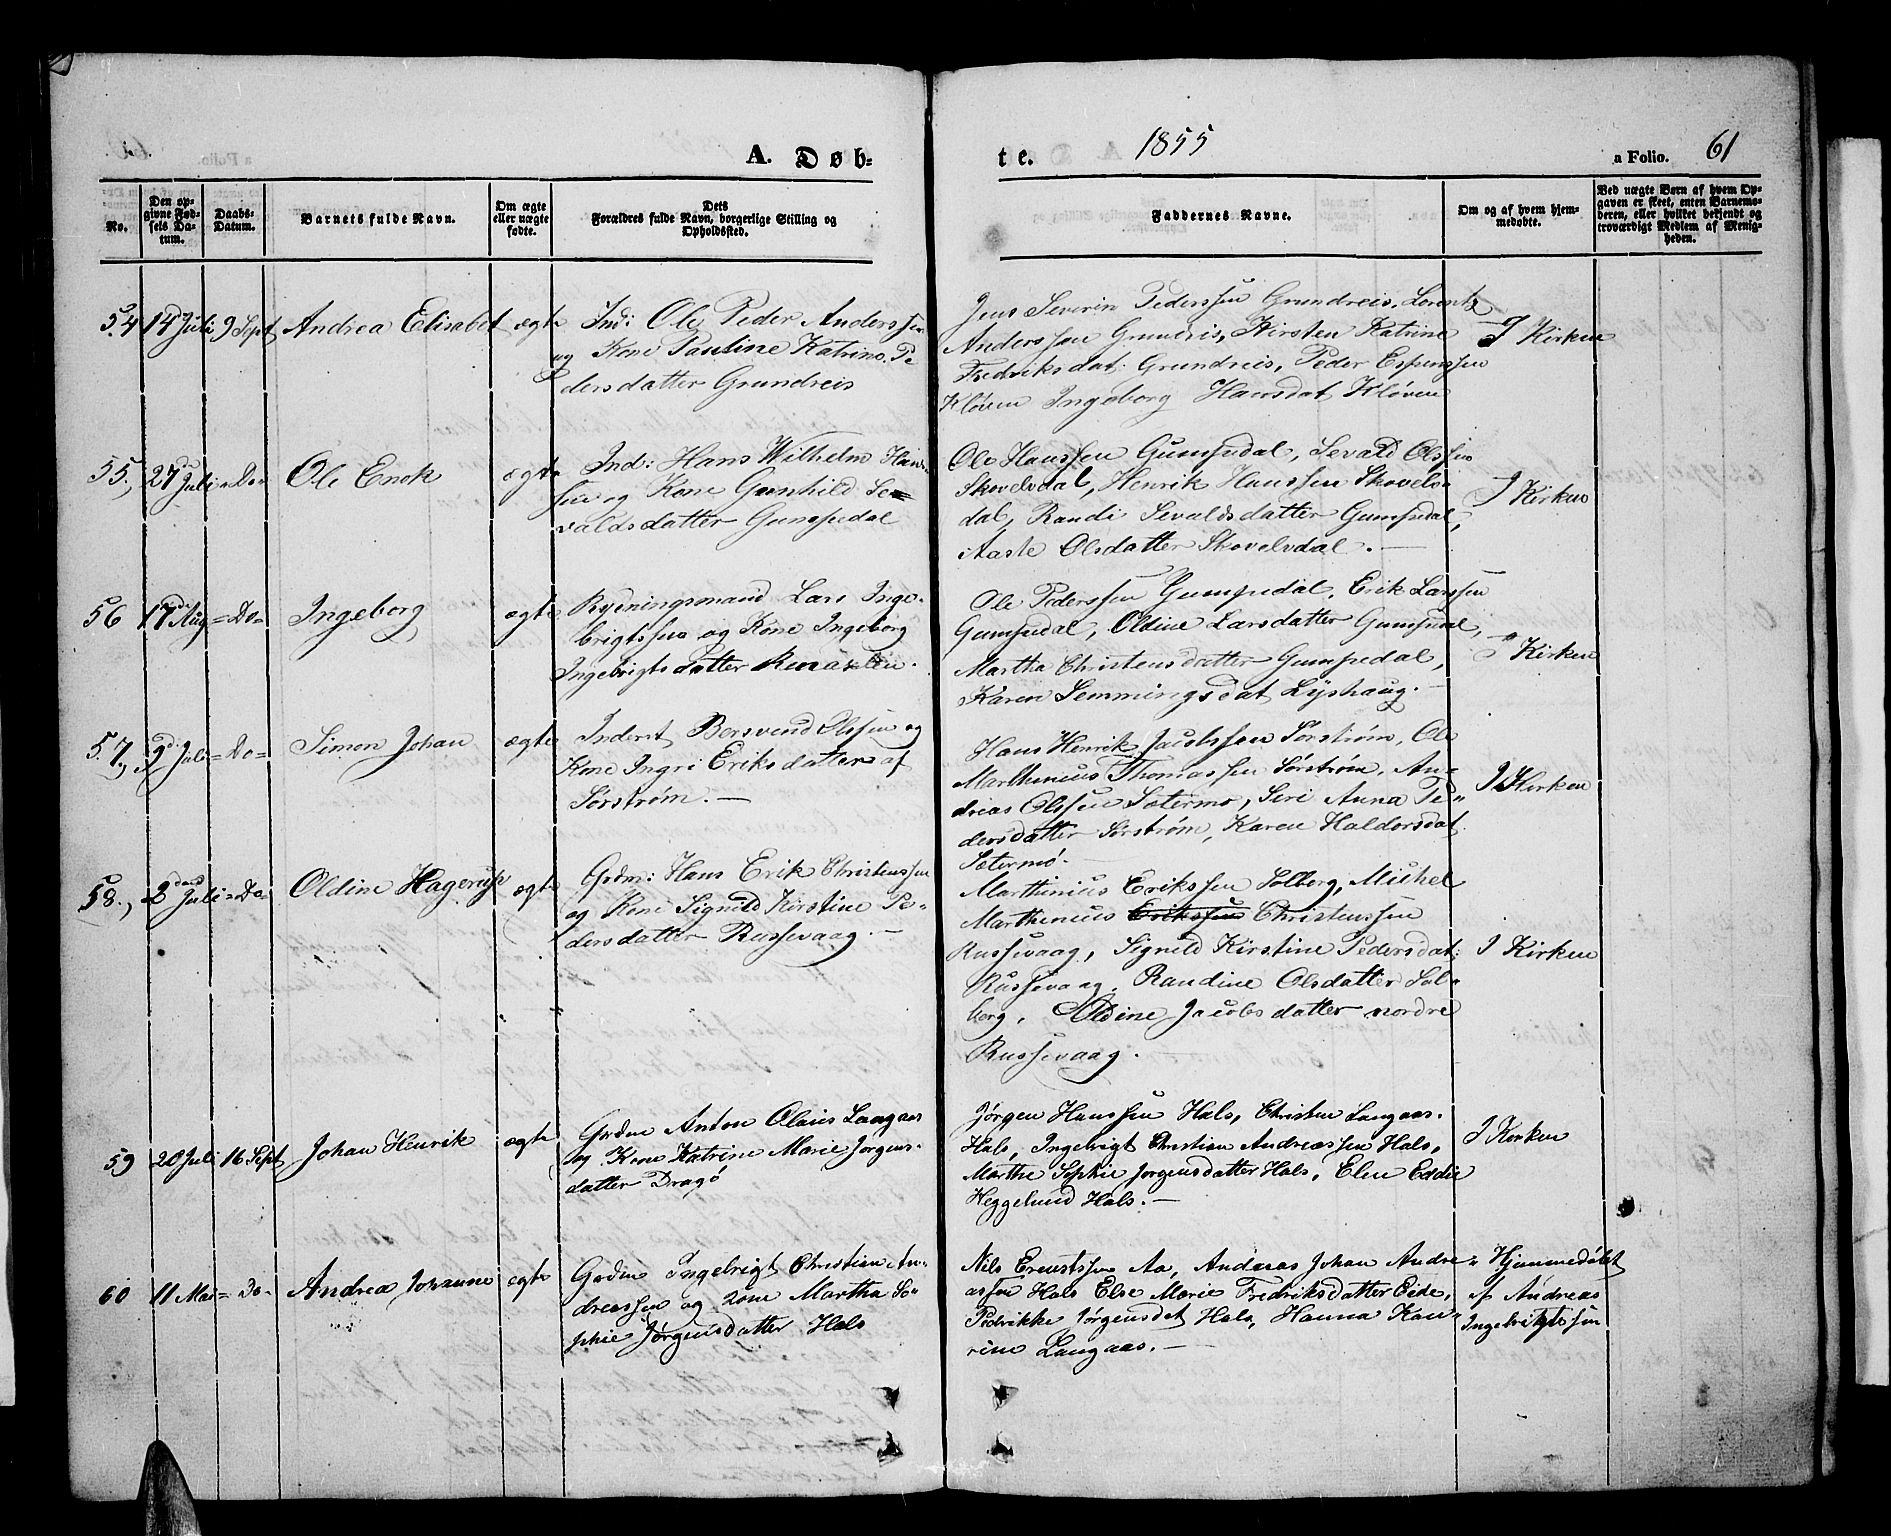 A. Døb-
te.
1855
a Folio. 61
No.
Den op-
givne Fød-
sels Da-
tum.
Daabs-
Datum.
Barnets fulde Navn.
Om ægte
eller uægte
fødte.
Dets
Forældres fulde Navn, borgerlige Stilling og
Opholdssted.
Faddernes Navne.
Om og af hvem hjem-
medøbte.
Ved uægte Børn af hvem Op-
gaven er skeet, enten Barnemo-
deren, eller hvilket bekjendt og
troværdigt Medlem af Menig-
heden.
54 14 Juli 9 Sept Andrea Elisabet ægte
Ind: Ole Peder Anderssen
og Kone Pauline Katrine Pe
dersdatter Grundreis
Jens Severin Pederssen Grundreis, Lorentz
Anderssen Grundreis, Kirsten Katrine
Fredriksdat: Grundreis, Peder Espenssen
Kløven Ingeborg Hansdat Kløven
I Kirken
55., 27 Juli =Do= Ole Enok ægte
Ind: Hans Wilhelm Hans-
sen og Kone Gunhild Se=
valdsdatter Gumpedal
Ole Hanssen Gumpedal, Sevald Olssen
Skovelvdal, Henrik Hanssen Skovelv-
dal, Randi Sevaldsdatter Gumpedal,
Aaste Olsdatter Skovelvdal. —
I Kirken
56 17 Aug =Do= Ingeborg ægte
Rydningsmand Lars Inge-
brigtssen og Kone Ingeborg
Ingebrigtsdatter Renaxlen.
Ole Pederssen Gumpedal, Erik Larssen
Gumpedal, Oldine Larsdatter Gumpedal,
Martha Christensdatter Gumpedal,
Karen Semmingsdat Lyshaug. —
I Kirken
57., 2 Juli =Do= Simon Johan ægte
Inderst Bersvend Olssen og
Kone Ingri Eriksdatter af
Sørstrøm. —
Hans Henrik Jacobssen Sørstrøm, Ole
Marthinius Thomassen Sørstrøm, An-
dreas Olssen Sætermo, Seri Anna Pe-
dersdatter Sørstrøm, Karen Haldorsdat
Sætermo. —
I Kirken
58., 2 Juli =Do= Oldine Hagerup ægte
Grdm: Hans Erik Christenssen
og Kone Signild Kirstine Pe-
dersdatter Russevaag. —
Marthinius Erikssen Solberg, Mickel
Marthinius Erikssen Christenssen
Russevaag, Signild Kirstine Pedersdat:
Russevaag. Randine Olsdatter Sol-
berg, Oldine Jacobsdatter nordre
Russevaag.
I Kirken
59 20 Juli 16 Sept Johan Henrik ægte
Grdm Anton Olaus Langaas
og Kone Katrine Marie Jørgens-
datter Dragø
Jørgen Hanssen Hals, Christen Langaas.
Hals, Ingebrigt Christian Andreassen Hals,
Marthe Sophie Jørgensdatter Hals, Elen Eddie
Heggelund Hals. —
I Kirken
60 11 Mar =Do= Andrea Johanne ægte
Grdm Ingebrigt Christian An-
dreassen og Kone Martha So-
phie Jørgensdatter Hals
Nils Erentssen Aa, Andreas Johan Andre-
assen Hals Else Marie Fredriksdatter Eide,
Pedrikke Jørgensdat Hals, Hanna Kat-
rine Langaas. —
Hjemmedøbt
af Andreas
Ingebrigtssen